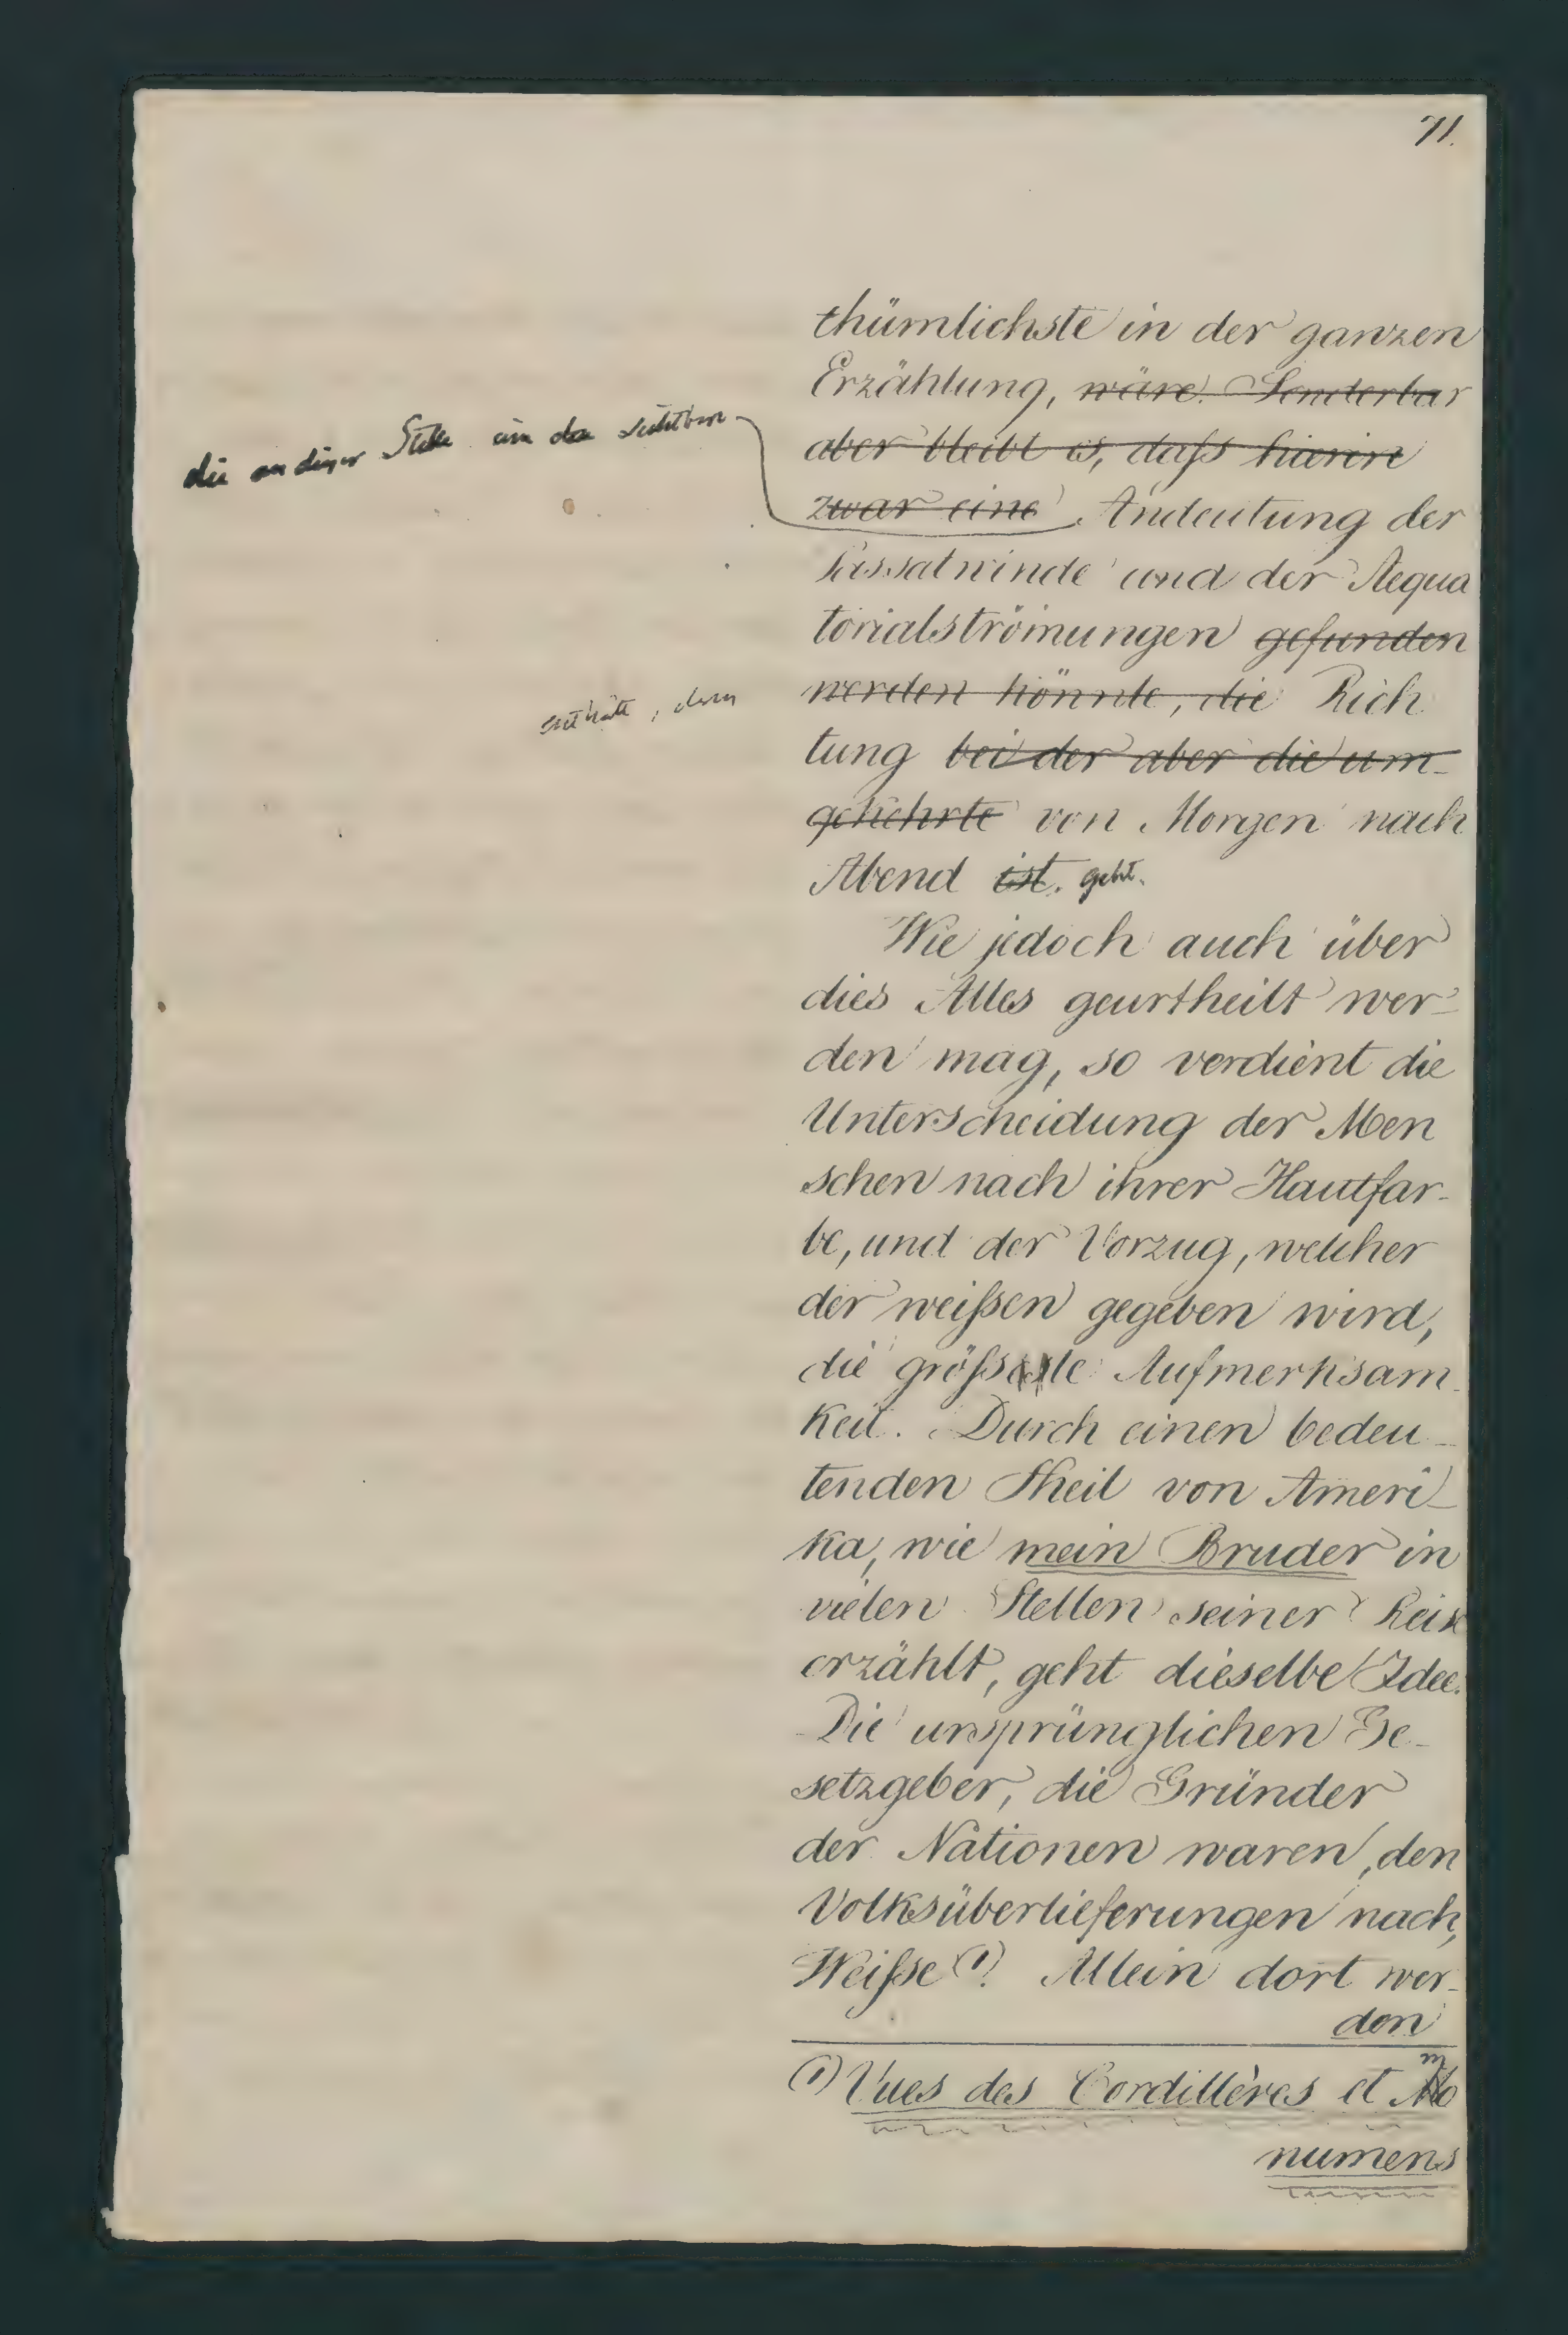 71.
thümlichste in der ganzen
Erzählung, wäre. Sonderbar
aber bleibt es, daſs hierin
zwar eine Andeutung der
die an dieser Stelle
Passatwinde und der Aequa
torialströmungen gefunden
werden könnte, die Rich
enthält, deren
tung bei der aber die um-
gekehrte von Morgen nach
Abend ist. geht.
Wie jedoch auch über
dies Alles geurtheilt wer-
den mag, so verdient die
Unterscheidung der Men
schen nach ihrer Hautfar-
be, und der Vorzug, welcher
der weiſsen gegeben wird,
die gröſseste Aufmerksam-
keit. Durch einen bedeu-
tenden Theil von Ameri-
ka, wie mein Bruder in
vielen Stellen seiner Reise
erzählt, geht dieselbe Idee.
Die ursprünglichen Ge-
setzgeber, die Gründer
der Nationen waren, den
Volksüberlieferungen nach,
Weiſse (1). Allein dort wer-
den
(1) Vues des Cordillères et mo
numens